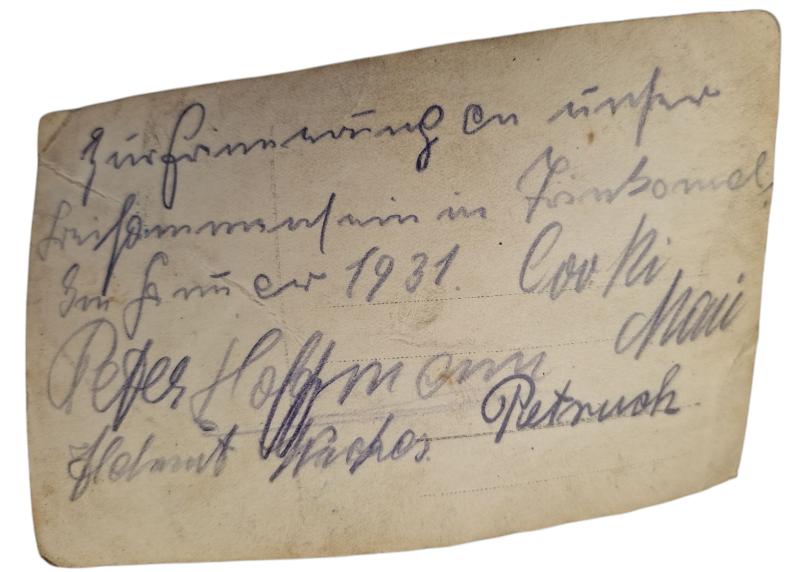 Zur Erinnerung an unser
Beisammensein in
Im Januar 1931. Cooki
Mani
Peter Hoffmann
Petruck
Helmut